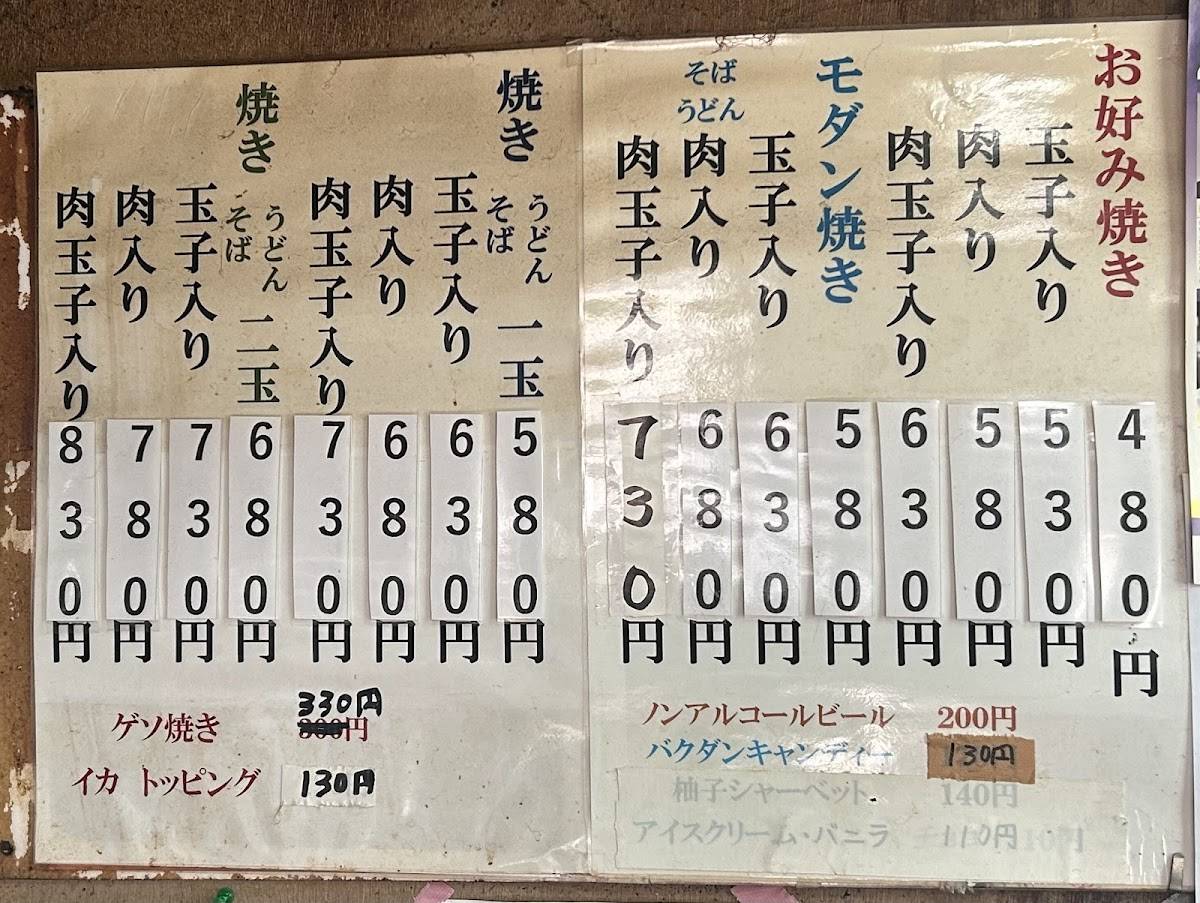 お好み焼き 480円
玉子入り 530円
肉入り 580円
肉玉子入り 630円
モダン焼き 580円
玉子入り 630円
そば
うどん
肉入り 680円
肉玉子入り 730円
ノンアルコールビール 200円
バクダンキャンディー 130円
柚子シャーベット 140円
アイスクリーム・バニラ 110円
焼き うどん そば 一玉 580円
玉子入り 630円
肉入り 680円
肉玉子入り 730円
焼き うどん そば 二玉 680円
玉子入り 730円
肉入り 780円
肉玉子入り 830円
330円
ゲソ焼き 300円
イカ トッピング 130円